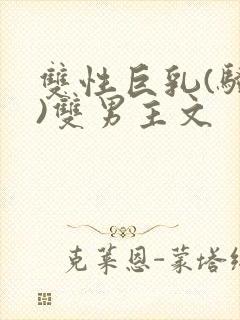 雙性巨乳(騷
)雙男主文
克萊恩-蒙塔